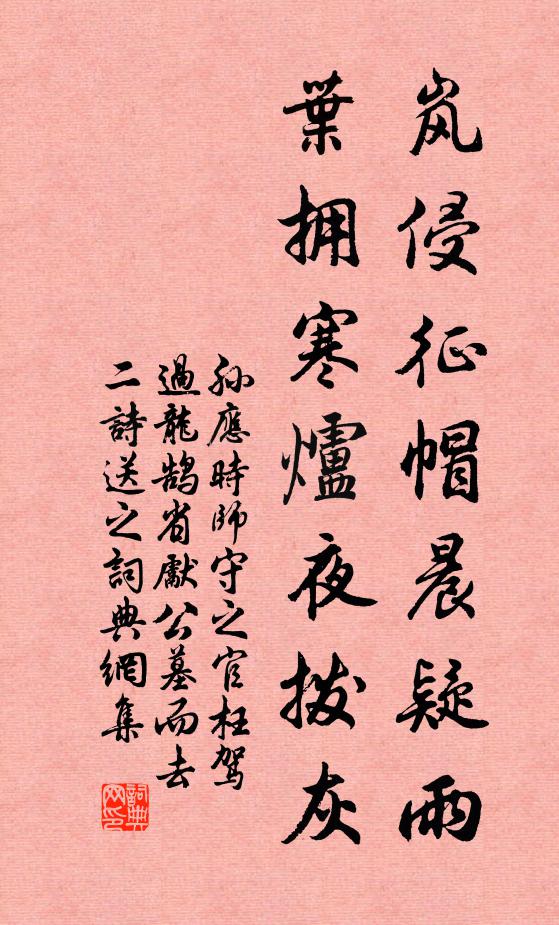 岚侵征帽晨疑雨
葉拥寒爐夜拨灰
孙應時師守之官枉驾
過龍鹄省獻公墓而去
二詩送之詞典網集
詞典
网印